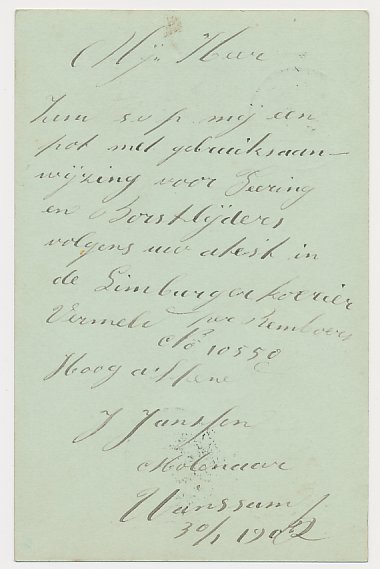 Mijn Heer
Zum s v p mij een
pot met gebruiksaan-
wijzing voor Teering
en Borstlijders
volgens uw atest in
de Limburger koerier
Vermeld per Rembours
No 10558
Hoog achtend
J Janssen
Molenaar
Wanssum
30/1 1902